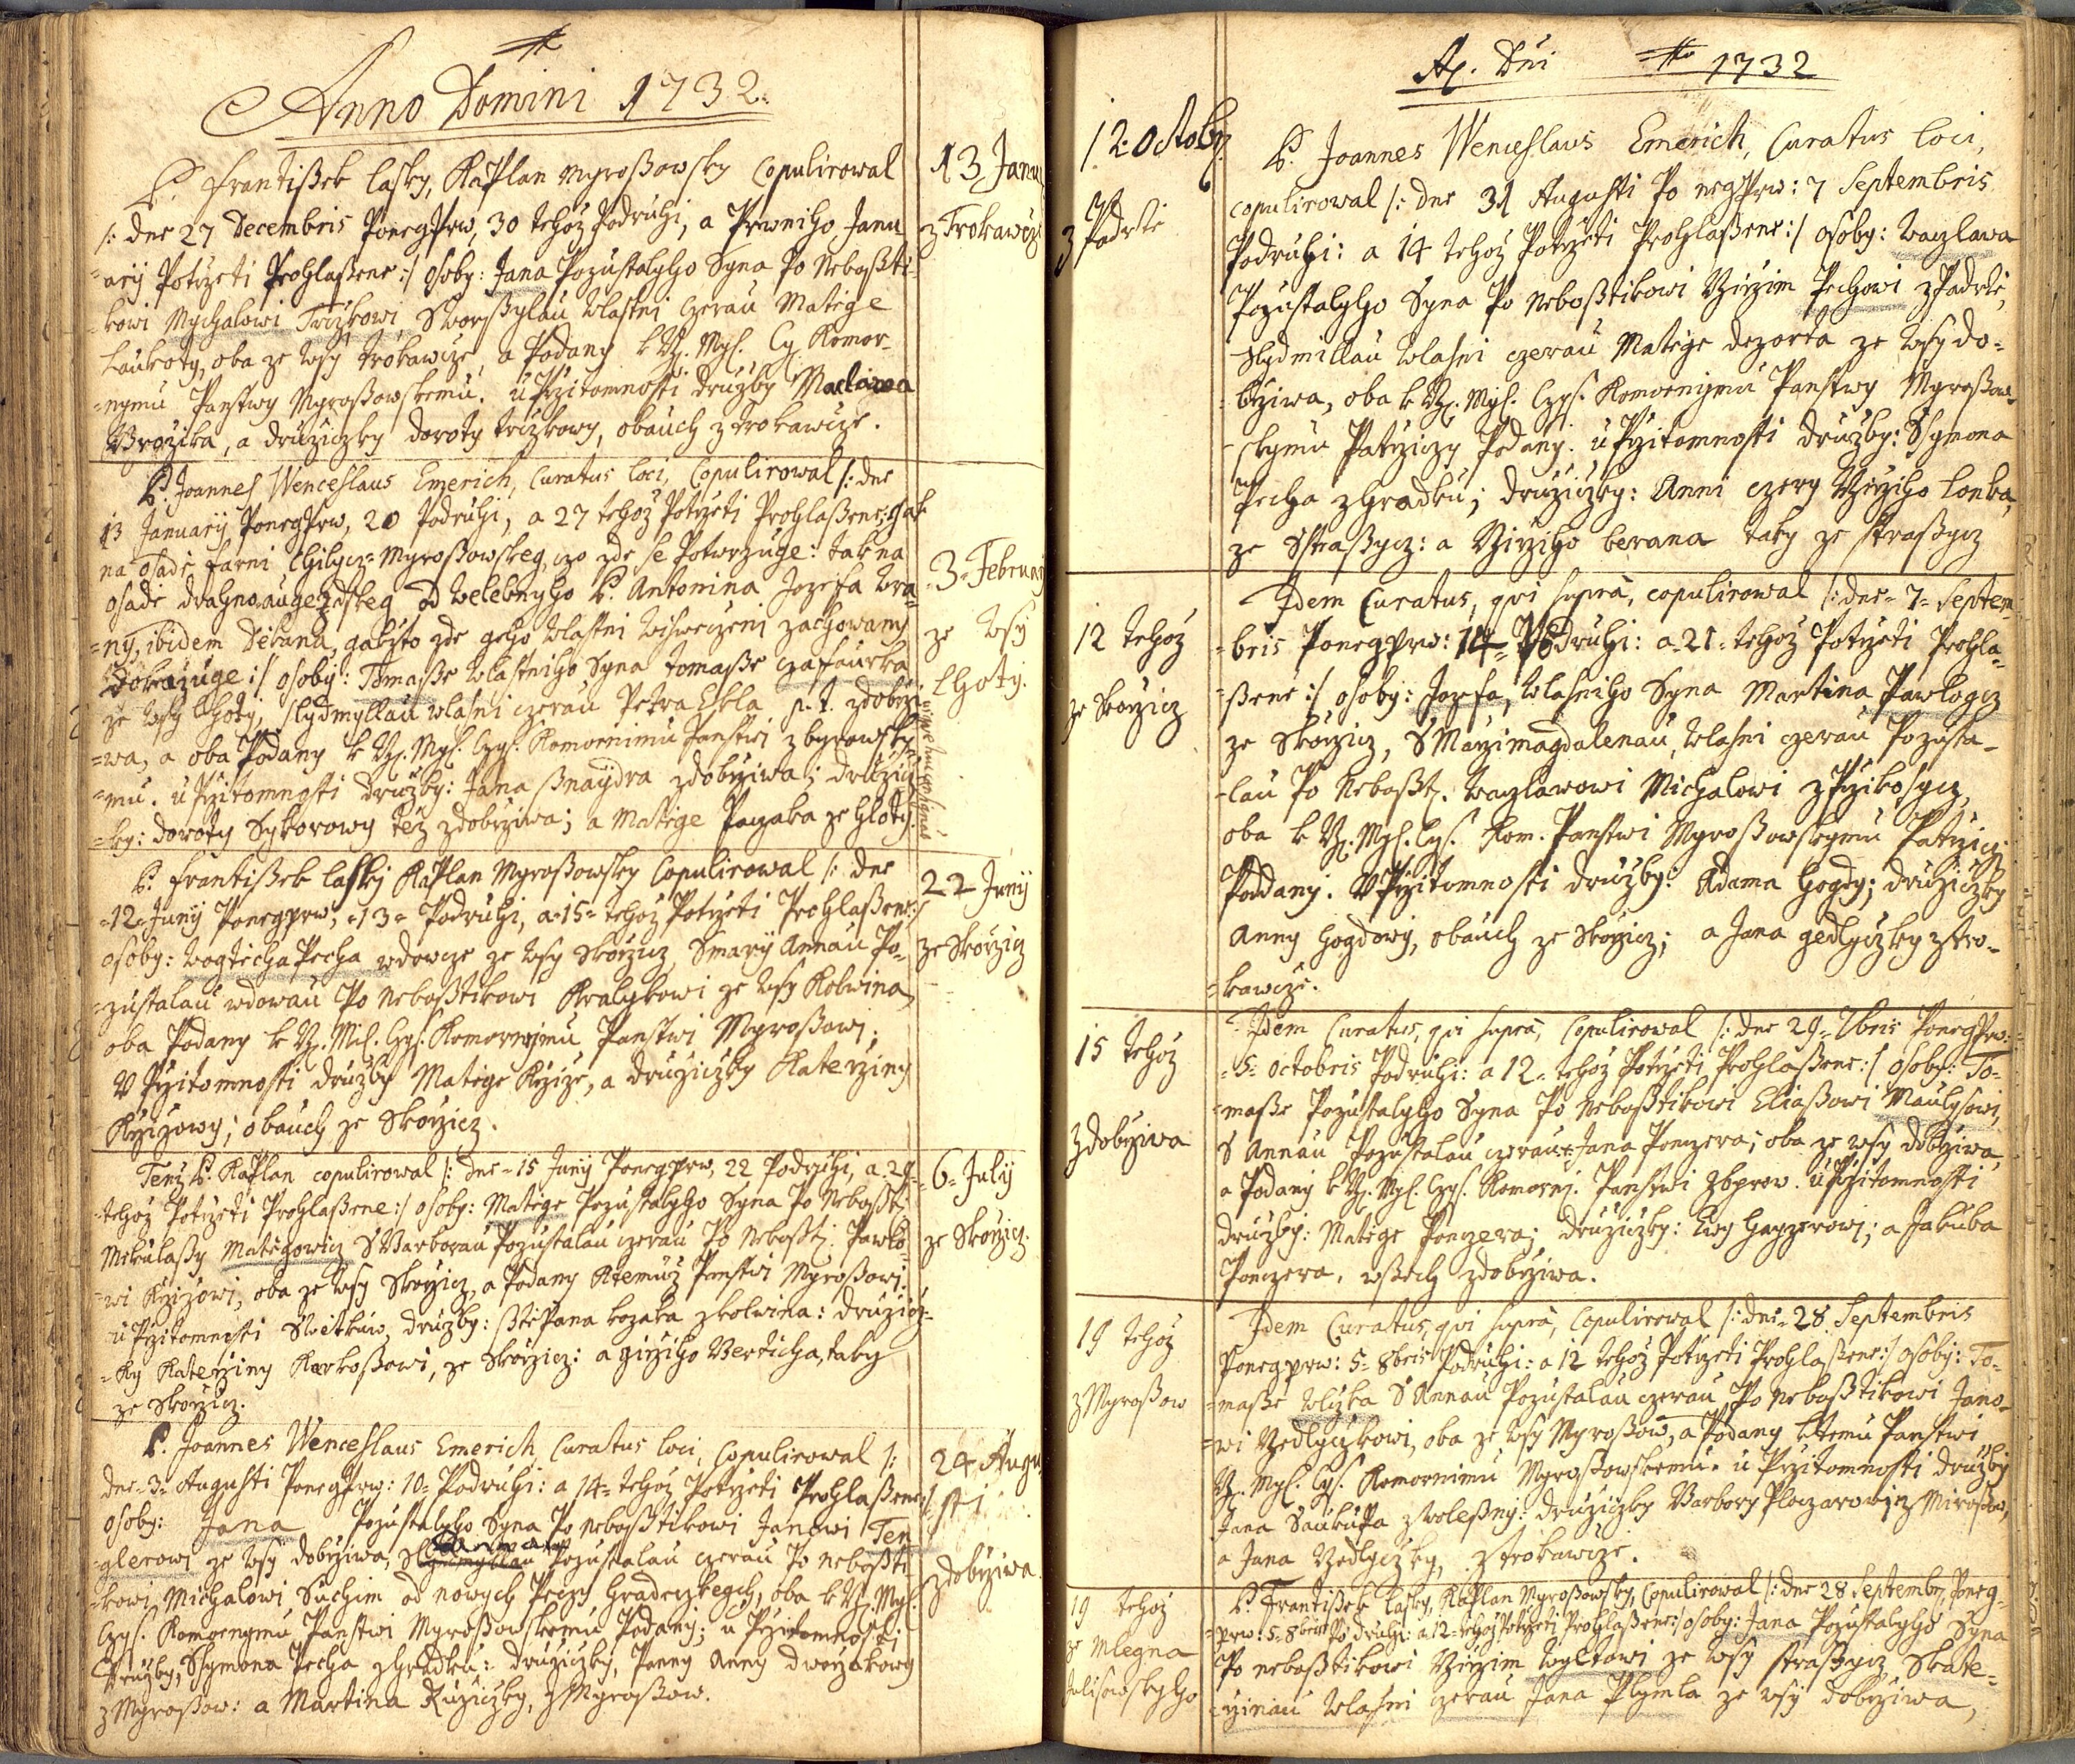 Anno Domini 1732.
P. Frantißek Lasky, Kaplan Mgroßowsky Copulirowal
/: dne 27 Decembris Ponegprw, 30 tehoz Podruhi, a Prwniho Janu
=arij Potrzeti Prohlaßene :/ osoby: Jana Pozustalyho Syna Po Neboßti-
=kowi Mychalowi Trczkowi, Sworßylau wlastni czerau Matiege
Laukoty, oba ze wsy Trokawcze, a Podany k Wz. Mys. Cy. Komor-
=nymu Panstwy Mgroßowskemu. u Przitomnosti druzby Waclawa
Brozika, a druziczky doroty trczkowy, obauch z Trokawcze.
13 Janua
z Trokawcze
P. Joannes Wenceslaus Emerich, Curatus loci, Copulirowal /: dne
13 Januarij Ponegprw, 20 Podruhi, a 27 tehoz Potrzeti Prohlaßene: Jak
na osade farni Mgroßowskeg, czo zde se Potwrzuge: tak na
osade drahnoaugezdskeg od welebnyho P. Antonina Jozefa Wra-
=ny, ibidem Dekana, gakzto zde geho wlastni zachowany
dokazuge :/ osoby: Tomaße wlastniho Syna tomaße
ze wsy Lhoty, slydmyllau wlasni czerau Petra Ekla p. t. zdobrzi
=wa, a oba Podany k Wz. Mys. Czys. Komornimu Panstwi zbyrowsky
=mu. u Przitomnosti druzby: Jana ßnaydra zdobrziwa; druzicz
=ky: doroty Sykorowy tez zdobrziwa; a Matiege Paczaka ze Lhoty.
3 Februarij
ze wsy
Lhoty.
P. Frantißek Lasky Kaplan Mgroßowsky Copulirowal /: dne
=12= Junij Ponegprw; =13= Podruhi, a =15= tehoz Potrzeti Prohlaßene :/
osoby: Wogtiecha Pecha wdowcze ze wsy Skorzicz, Smarij Annau Po-
=zustalau wdowau Po Neboßtikowi Kralykowi ze wsy Kolwina,
oba Podany k Wz. Mis. Czys. Komornymu Panstwi Mgroßowi,
V Przitomnosti druzby Matiege Krzize, a druziczky Katerziny
Krzizowy; obauch ze Skorzicz.
22 Junij
ze Skorzicz
Tenz P. Kaplan copulirowal /: dne =15 Junij Ponegprw, 22 Podruhi, a 29
tehoz Potrzeti Prohlaßene :/ osoby: Matiege Pozustalyho Syna Po Neboßt.
Mikulaßy Matiegowicz S Barborau Pozustalau czerau Po Neboßt. Pawlo-
=wi Krzizowi, oba ze wsy Skorzicz, a Podany Ktemuz Panstwi Mgroßowi:
u Przitomnosti Swietkuw, druzby: ßtiepana kozaka zkolwina: druzicz
=ky Katerziny Karkoßowi, ze Skorzicz: a girziho Berticha, taky
ze Skorzicz.
6 Julij
ze Skorzicz.
P. Joannes Wenceslaus Emerich, Curatus loci, Copulirowal /:
dne =3= Augusti Ponegprw: 10= Podruhi: a 14= tehoz Potrzeti Prohlaßene :/
osoby: Jana Pozustalyho Syna Po neboßtikowi Janowi Ten
=glerowi ze wsy dobrziwa, Pozustalau czerau Po neboßti
=kowi Michalowi Suchim od nowych Peczy hradeczkegch, oba k Wz. Mys.
Czys. Komornymu Panstwi Mgroßowskemu Podany; u Przitomnosti
druzby, Sßymona Pecha zhradku: druziczky, Panny Anny dworzakowy
z Mgroßow: a Martina Ruziczky, z Mgroßow.
24 Augu
sti
z dobrziwa
A. Dni 1732
P. Joannes Wenceslaus Emerich, Curatus loci,
copulirowal /: dne 31 Augusti Po negprw: 7 Septembris
Podruhi: a 14 tehoz Potrzeti Prohlaßene :/ osoby: Waczlawa
Pozustalyho Syna Po neboßtikowi Girzim Pechowi z Padrtie,
slydmillau wlasni czerau Matiege dezorta ze wsy do-
brziwa, oba k Wz. Mys. Czys. Komornymu Panstwy Mgroßow-
=skymu Patrziczy Podany. u Przitomnosti druzby: Symona
Pecha zhradku; druziczky: Anni czery Girziho Lonka,
ze Straßycz: a Girziho berana taky ze straßycz
12. Octob.
z Padrtie
Idem Curatus, qvi supra, copulirowal /: dne =7= Septem
=bris Ponegprw: 14= Podruhi: a =21= tehoz Potrzeti Prohla-
=ßene :/ osoby: Jozefa, wlasniho Syna Martina Pawlogcz
ze Skorzicz, S Marzimagdalenau, wlasni czerau Pozusta-
=lau Po Neboßt. Waczlawowi Michalowi z Przikosycz,
oba k Wz. Mys. Czys. Kom. Panstwi Mgroßowskymu Patrziczy
Poddany. V Przitomnosti druzby: Adama hogdy; druziczky
Anny hogdowy, obauch ze Skorzicz; a Jana gedlyczky ztro-
=kawcze.
12 tehoz
ze Skorzicz
Idem Curatus, qvi supra, Copulirowal /: dne 29= 7bris Ponegprw:
=5= octobris Podruhi: a 12= tehoz Potrzeti Prohlaßene :/ osoby: To-
=maße Pozustalyho Syna Po neboßtikowi Eliaßowi Maulysowi,
S Annau Pozustalau czerau Jana Ponczera; oba ze wsy dobrziwa,
a Podany k Wz. Mys. Czys. Komorni. Panstwi Zbyrow. u Przitomnosti
druzby: Matiege Ponczera; druziczky: Ewy ; a Jakuba
Ponczera, wßech zdobrziwa.
15 tehoz
zdobrziwa
Idem Curatus, qvi supra, Copulirowal /: dne =28 Septembris
Ponegprw: 5= 8bris Podruhi: a 12 tehoz Potrzeti Prohlaßene :/ osoby: To-
=maße Wlczka S Annau Pozustalau czerau Po neboßtikowi Jano-
=wi Gedlyczkowi, oba ze wsy Mgroßow, a Podany ktemu Panstwi
Wz. Mys. Czys. Komornimu Mgroßowskemu. u Przitomnosti druzby
Jana Saukupa zwoleßny: druziczky Barbory z Miroßow,
a Jana Gedlyczky, ztrokawcze.
19 tehoz
z Mgroßow
P. Frantißek Lasky, Kaplan Mgroßowsky, Copulirowal /: dne 28 Septembr. Poneg-
prw: 5= 8bris Po druhe: a 12= tehoz Potrzeti Prohlaßene :/ osoby: Jana Pozustalyho Syna
Po neboßtikowi Girzim Wyltowi ze wsy straßycz, Skate-
=rzinau wlasni czerau Jana Plymla ze wsy dobrziwa,
19 tehoz
ze Mlegna